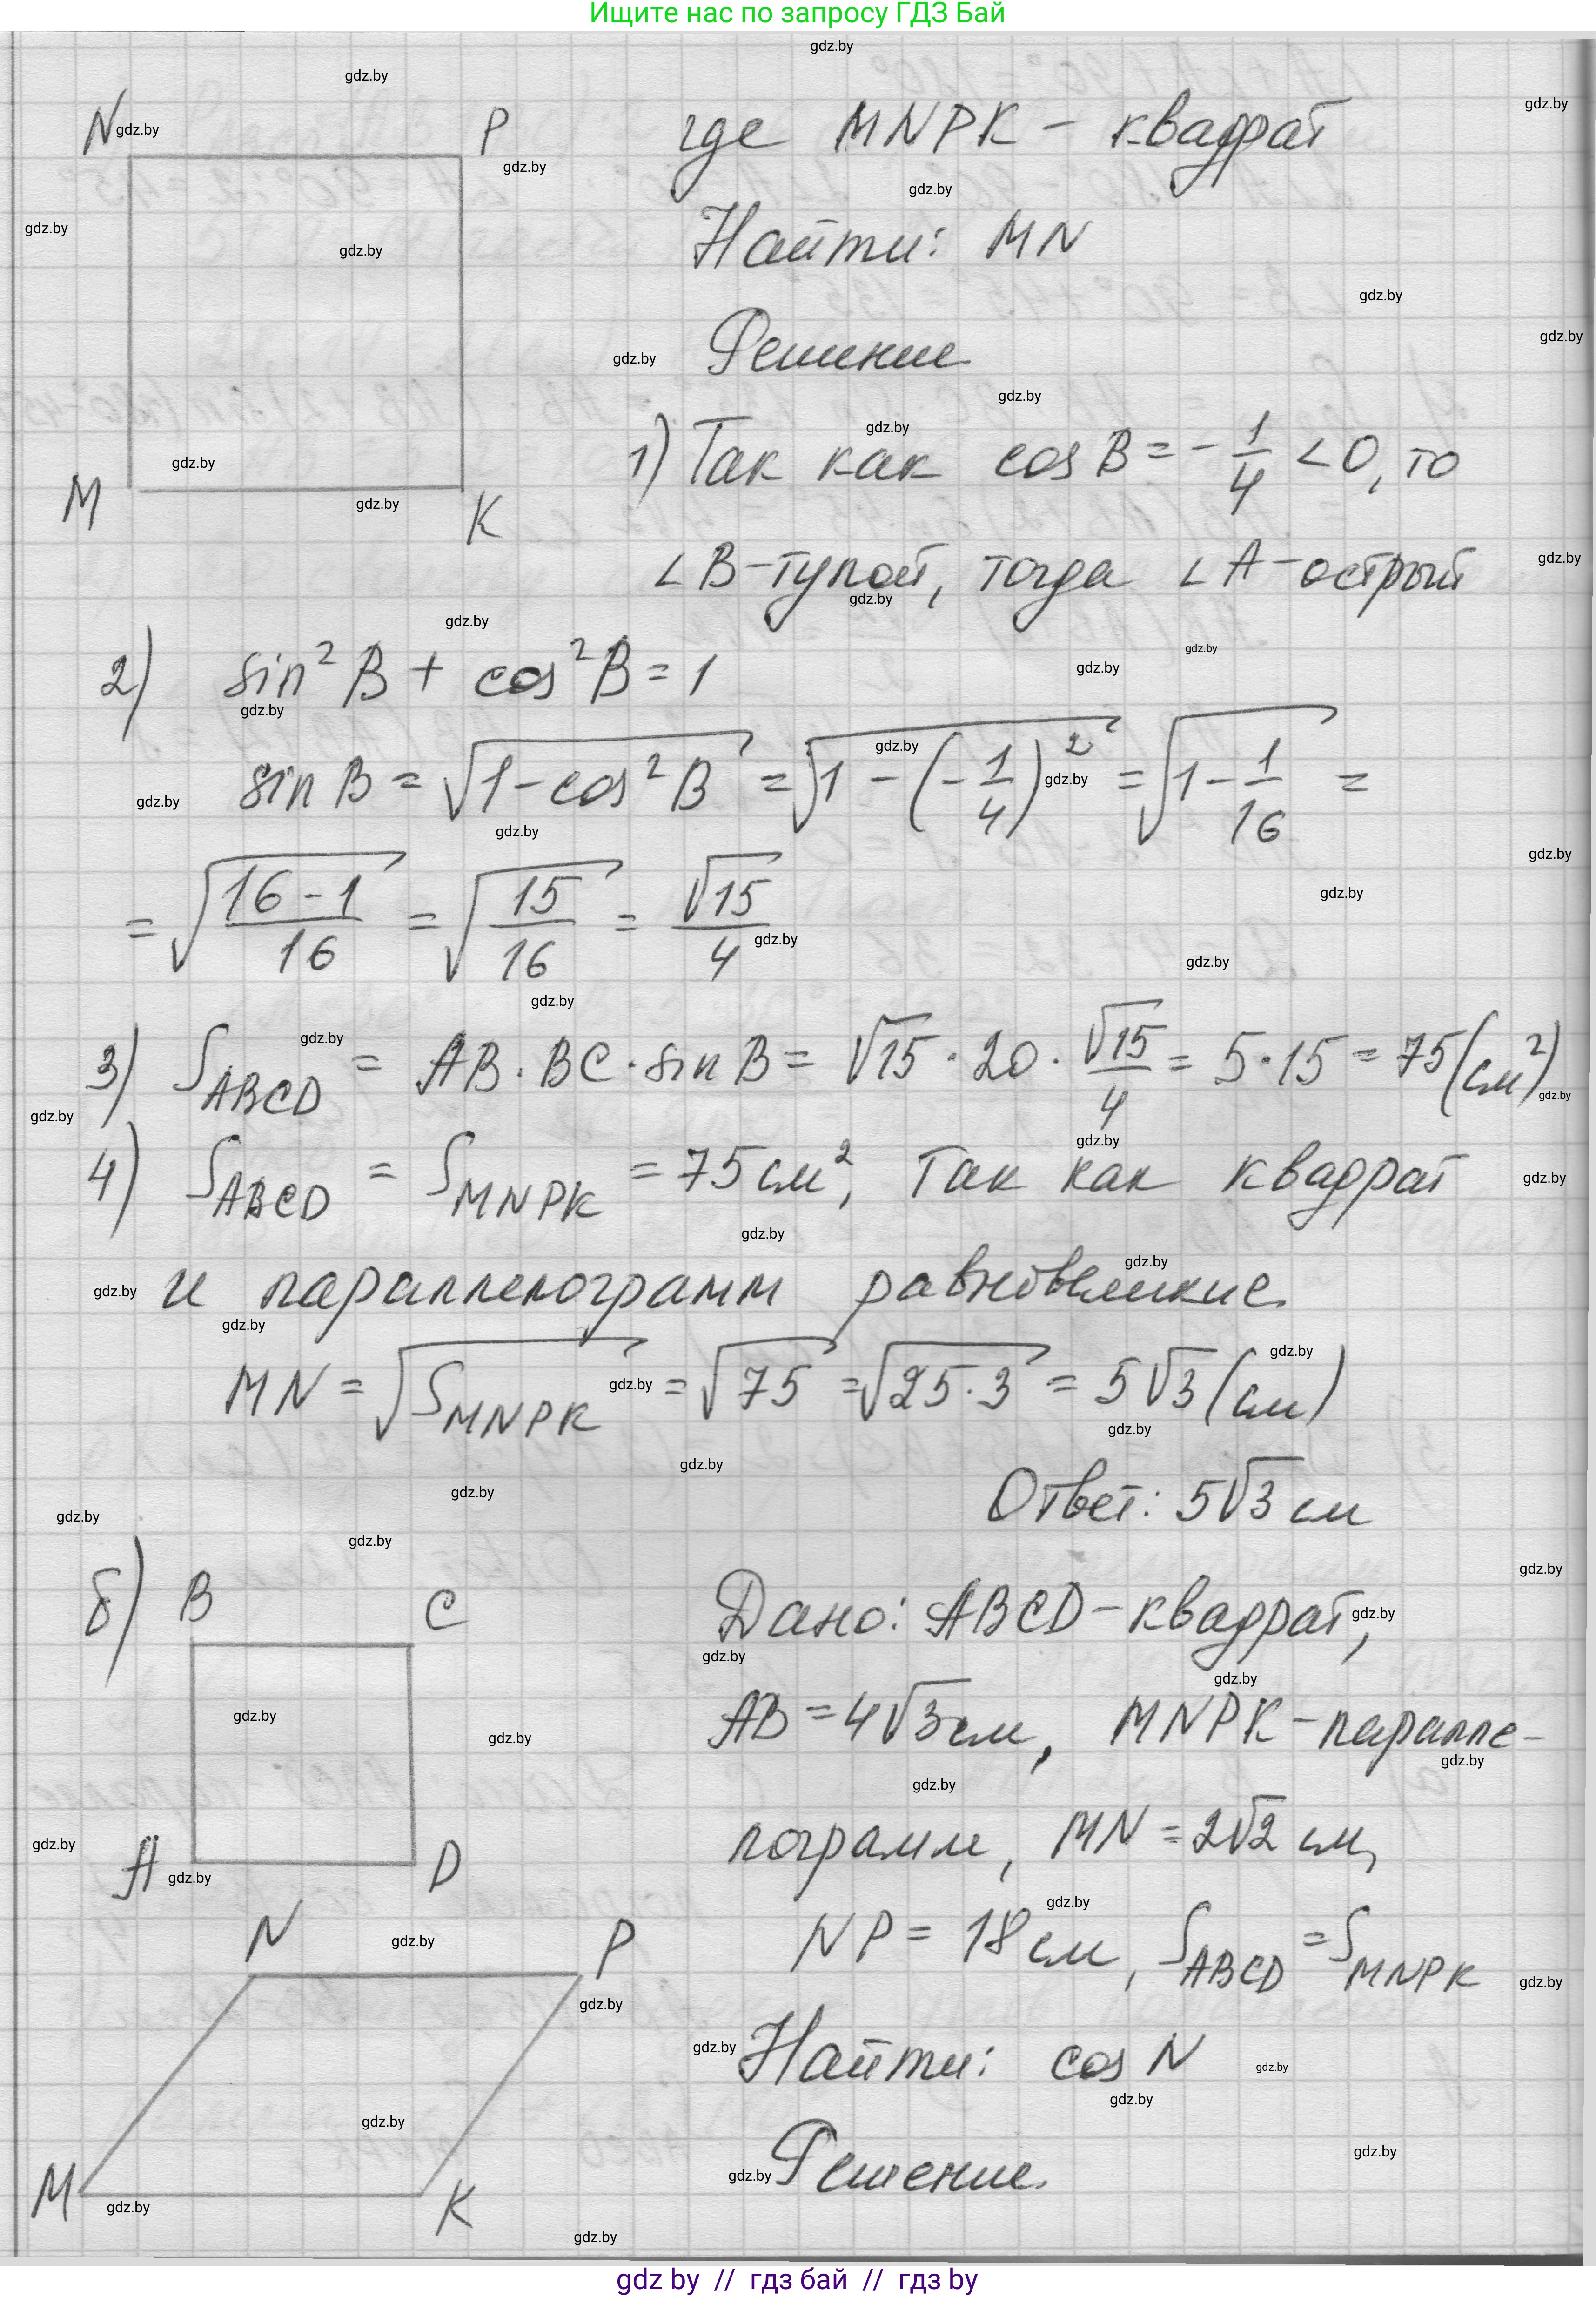 Ищите нас по запросу ГДЗ Бай
N P где MNPK - квадрат
Найти: MN
Решение
1) Так как cos B = - 1/4 < 0, то
M K
∠B - тупой, тогда ∠A - острый
2) sin² B + cos² B = 1
sin B = √(1 - cos² B) = √(1 - (-1/4)²) = √(1 - 1/16) =
= √((16 - 1)/16) = √(15/16) = √15/4
3) S_ABCD = AB · BC · sin B = √15 · 20 · √15/4 = 5 · 15 = 75 (см²)
4) S_ABCD = S_MNPK = 75 см², так как квадрат
и параллелограмм равновеликие.
MN = √S_MNPK = √75 = √(25 · 3) = 5√3 (см)
Ответ: 5√3 см
б) B C Дано: ABCD - квадрат,
AB = 4√3 см, MNPK - паралле-
лограмм, MN = 2√2 см,
A D
N P NP = 18 см, S_ABCD = S_MNPK
Найти: cos N
Решение.
M K
gdz by // гдз бай // гдз by